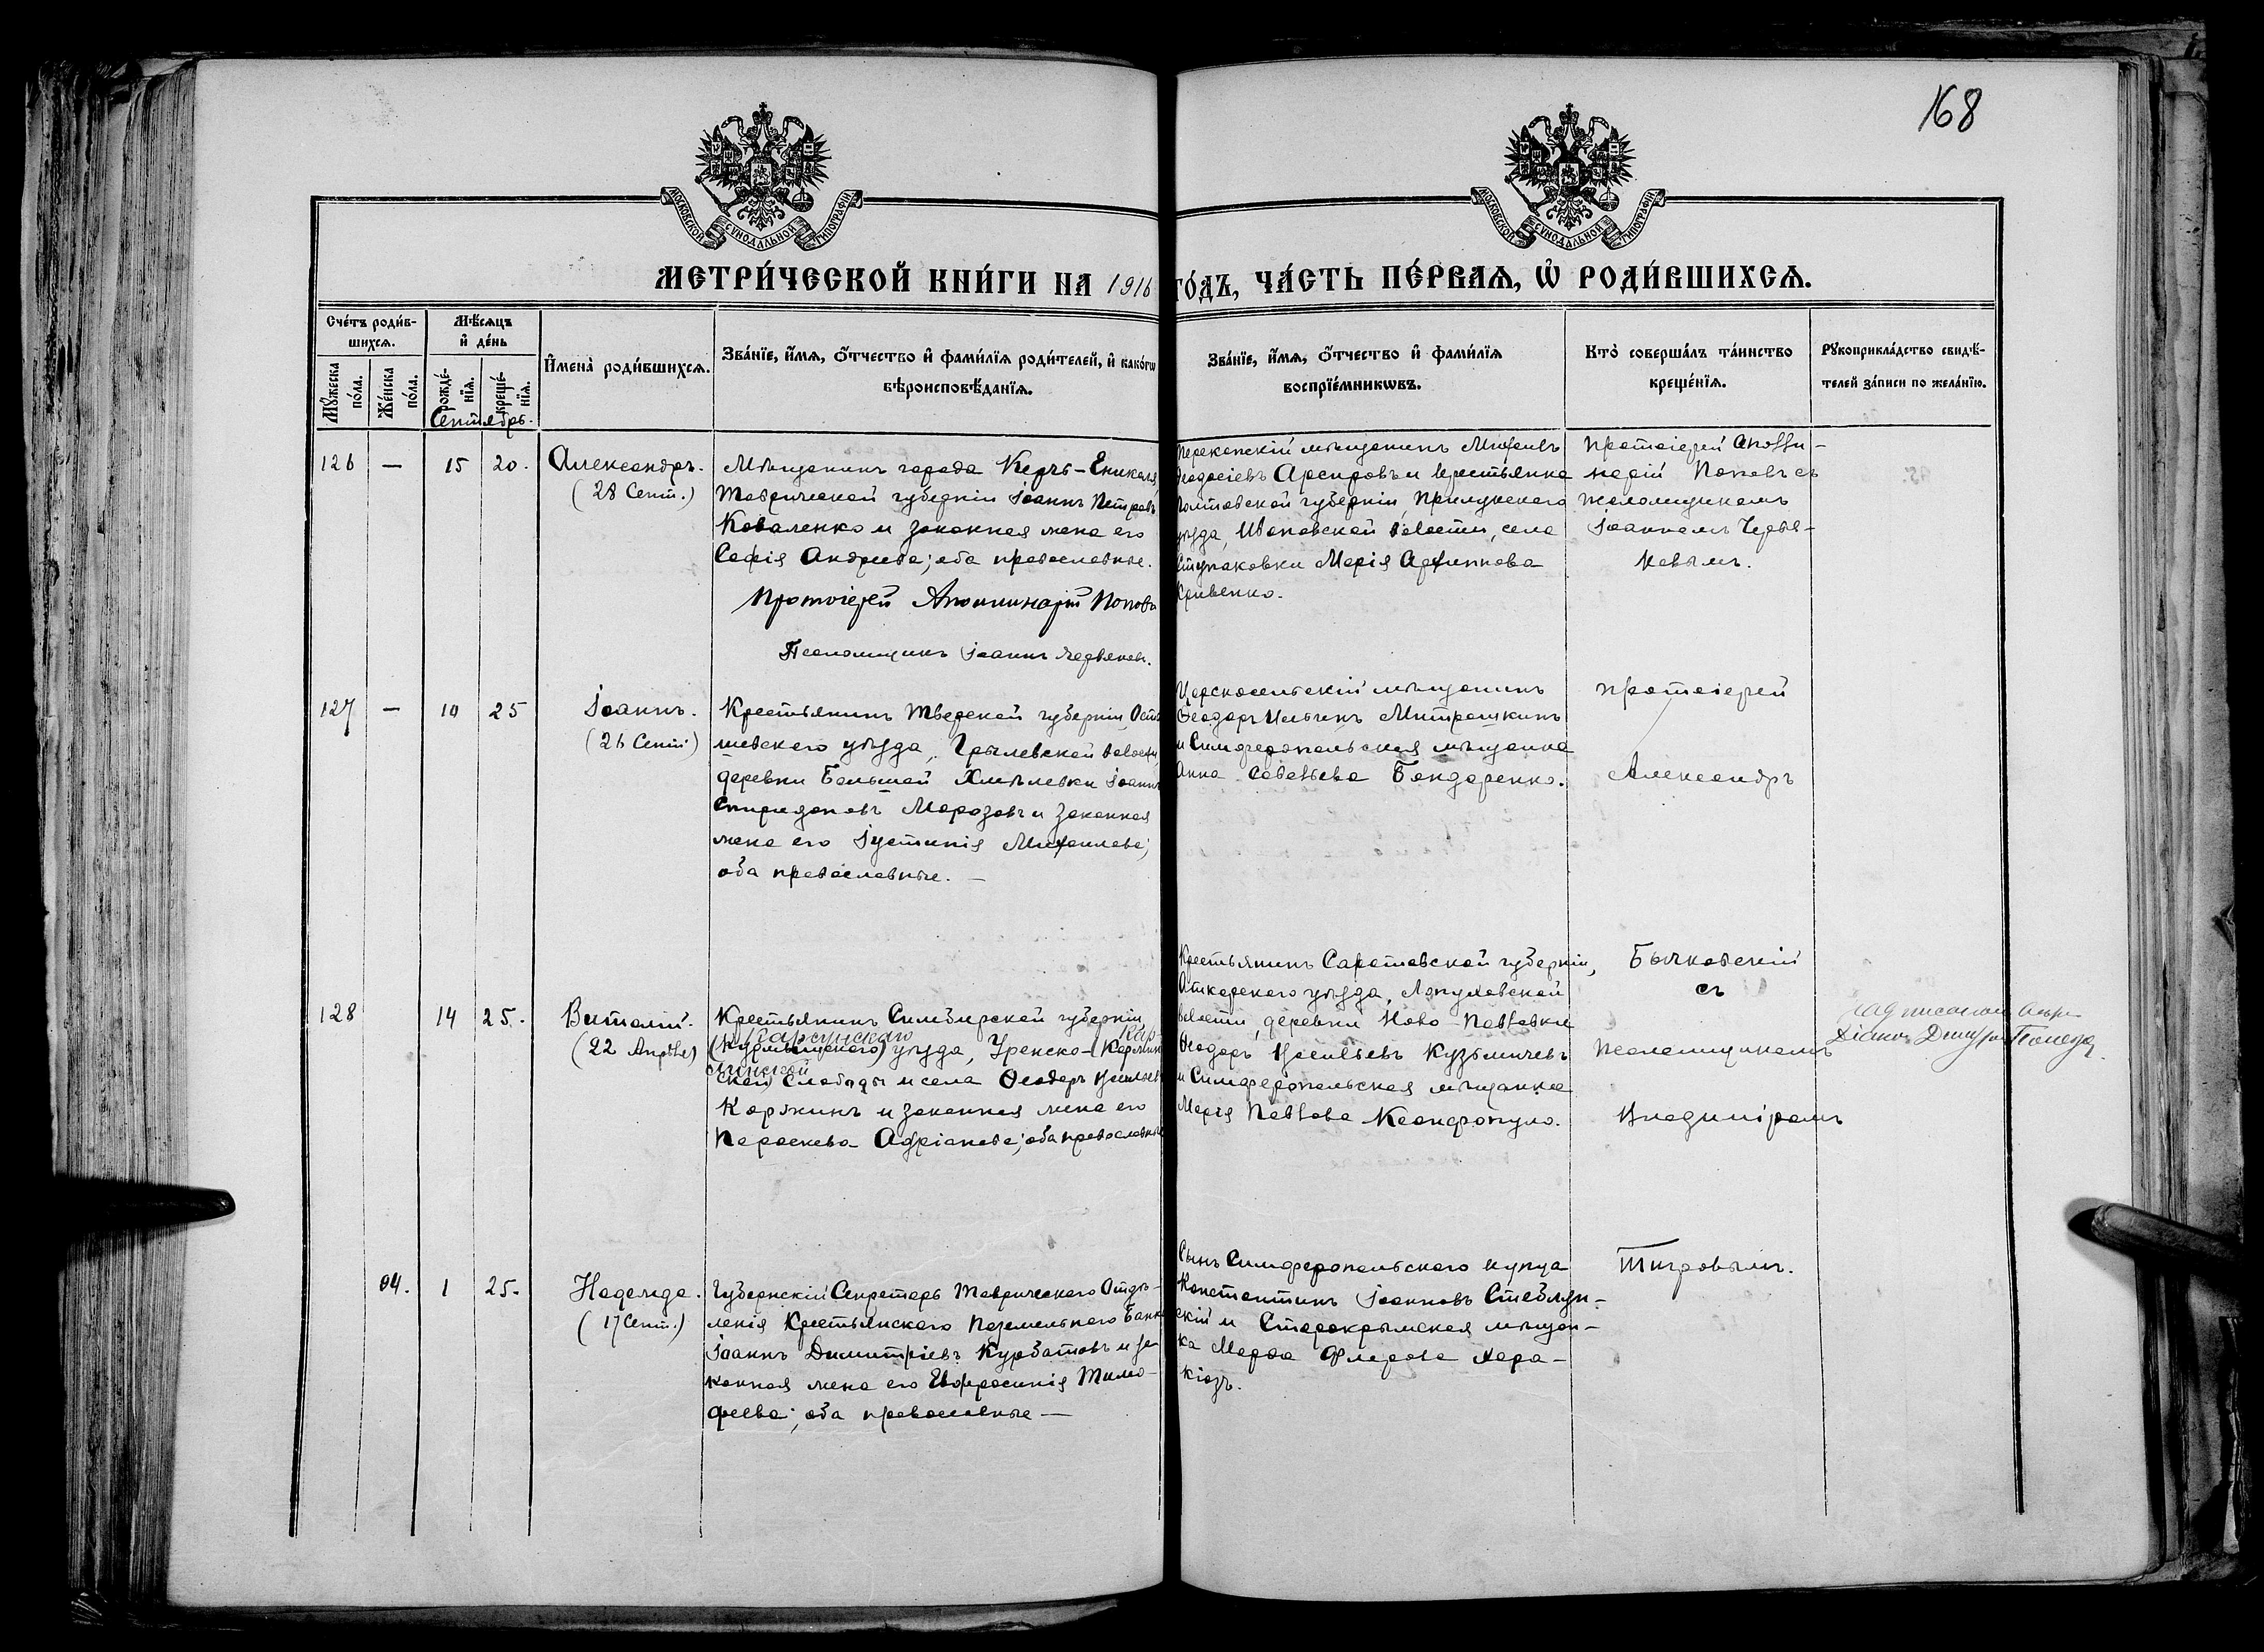 168
МОСКОВСКОЙ СѴНОДАЛЬНОЙ ТИПОГРАФІИ
МОСКОВСКОЙ СѴНОДАЛЬНОЙ ТИПОГРАФІИ
МЕТРИ́ЧЕСКОЙ КНИ́ГИ НА 1916 ГО́ДЪ, ЧА́СТЬ ПЕ́РВАѦ, Ѡ҆ РОДИ́ВШИХСѦ.
Сче́тъ роди́в-
шихсѧ.
Мꙋ́жеска по́ла.
Же́нска по́ла.
Мѣ́сѧцъ
и҆ де́нь
рожде́-
нїѧ.
креще́-
нїѧ.
Сентябрь.
И҆мена̀ роди́вшихсѧ.
Зва́нїе, и҆́мѧ, ѻ҆́тчество и҆ фами́лїѧ роди́телей, и҆ како́гѡ
вѣроисповѣ́данїѧ.
Зва́нїе, и҆́мѧ, ѻ҆́тчество и҆ фами́лїѧ
воспрїе́мникѡвъ.
Кто̀ соверша́лъ та́инство
креще́нїѧ.
Рꙋкоприкла́дство свидѣ́-
телей за́писи по жела́нїю.
126 — 15 20.
Александръ.
(28 Сент.)
Мѣщанинъ города Керчь-Еникале,
Таврической губерніи Іоаннъ Петровъ
Коваленко и законная жена его
Софія Андреева; оба православные.
Протоіерей Аполлинарій Поповъ
Псаломщикъ Іоаннъ Червяковъ.
Перекопскій мѣщанинъ Михаилъ
Ѳеодосіевъ Арсировъ и крестьянка
Полтавской губерніи, Прилукскаго
уѣзда, Ивановской волости, села
Ступаковки Марія Архиппова
Кривенко.
Протоіерей Аполли-
нарій Поповъ съ
псаломщикомъ
Іоанномъ Червя-
ковымъ.
127 — 10 25
Іоаннъ.
(26 Сент.)
Крестьянинъ Тверской губерніи, Оста-
шевскаго уѣзда, Грылевской волости,
деревни Большой Хмѣлевки Іоаннъ
Спиридоновъ Морозовъ и законная
жена его Іустинія Михаилова;
оба православные. —
Царскосельскій мѣщанинъ
Ѳеодоръ Ильинъ Митрошкинъ
и Симферопольская мѣщанка
Анна Савельева Бондаренко.
Протоіерей
Александръ
128 14 25.
Виталій.
(22 Апрѣля)
Крестьянинъ Симбирской губерніи
Карсунскаго
(Курмышскаго) уѣзда, Уренско-Карлин
ской Слободы и села Ѳеодоръ Васильев
Коржинъ и законная жена его
Параскева Адріанова; оба православные
Крестьянинъ Саратовской губерніи,
Аткарскаго уѣзда, Лопуховской
волости, деревни Ново-Павловки
Ѳеодоръ Васильевъ Кузьмичевъ
и Симферопольская мѣщанка
Марія Павлова Ксандопуло.
Бычковскій
съ
псаломщикомъ
Владиміромъ
Діаконъ
04. 1 25.
Надежда.
(17 Сент.)
Губернскій Секретарь Таврическаго Отдѣ-
ленія Крестьянскаго Поземельнаго Банка
Іоаннъ Димитріевъ Курбатовъ и за-
конная жена его Евфросинія Тимо-
феева; оба православные —
Сынъ Симферопольскаго купца
Константинъ Іоанновъ Стеблун-
скій и Старокрымская мѣщан-
ка Марѳа Флорова Кара-
кіозъ.
Тигровымъ.